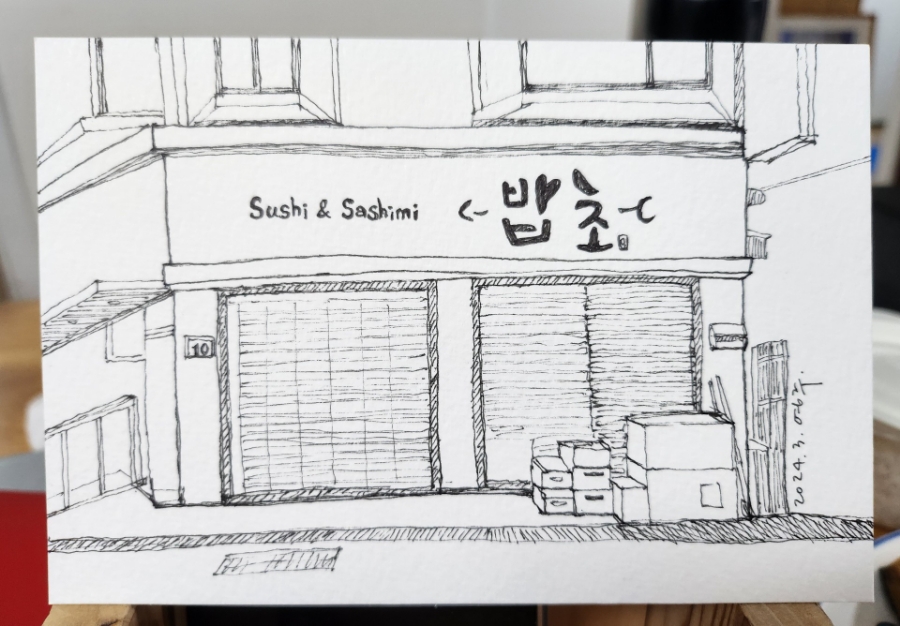 Sushi & Sashimi 밥초
10
2024.3.